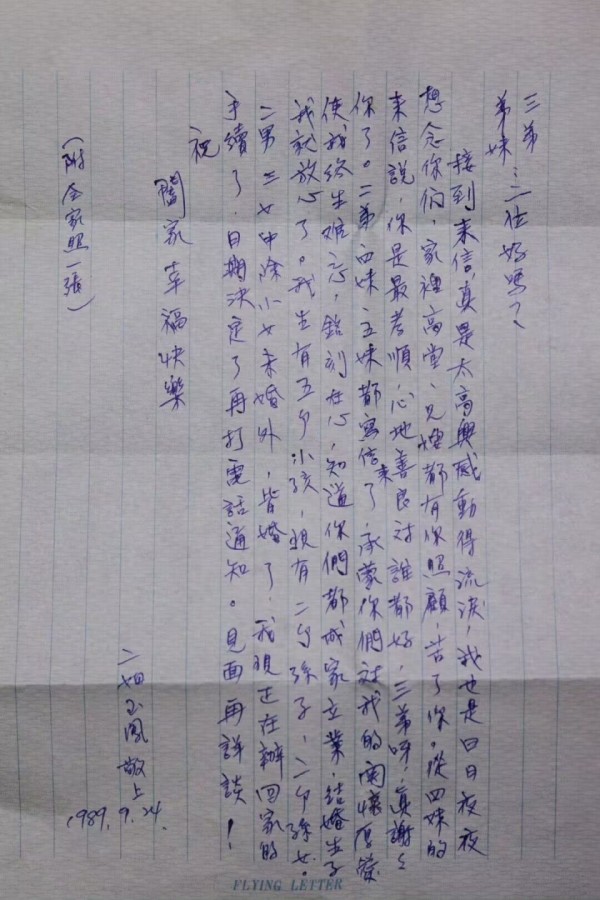 三弟
弟妹：二位好嗎？
接到來信，真是太高興感動得流淚，我也是日日夜夜
想念你們，家裡高堂、兄嫂都有你照顧，苦了你。從四妹的
來信說，你是最孝順，心地善良対誰都好，三弟呀，真謝々
你了。二弟四妹、五妹都寫信來了，承蒙你們対我的関懷厚愛
使我終生难忘，銘刻在心，知道你們都成家立業，結婚生子
我就放心了。我生有五个小孩，現有二个孫子，二个孫女。
二男三女中除小女未婚外，皆婚了，我現正在辦回家的
手續了，日期決定了再打電話通知。見面再詳談！
祝
闔家幸福快樂
二姐玉鳳敬上
1989.9.24.
(附全家照一張)
FLYING LETTER